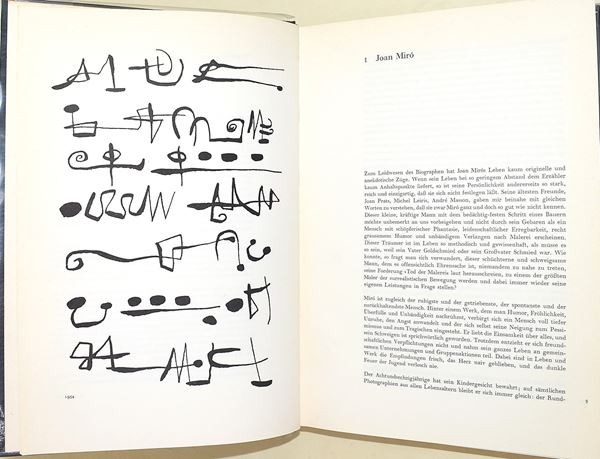 1954
1 Joan Miró
Zum Leidwesen des Biographen hat Joan Mirós Leben kaum originelle und
anekdotische Züge. Wenn sein Leben bei so geringem Abstand dem Erzähler
kaum Anhaltspunkte liefert, so ist seine Persönlichkeit andererseits so stark,
reich und einzigartig, daß sie sich nicht festlegen läßt. Seine ältesten Freunde,
Joan Prats, Michel Leiris, André Masson, gaben mir beinahe mit gleichen
Worten zu verstehen, daß sie zwar Miró ganz und doch so gut wie nicht kennen.
Dieser kleine, kräftige Mann mit dem bedächtig-festen Schritt eines Bauern
möchte unbemerkt an uns vorbeigehen und nicht durch sein Gebaren als ein
Mensch mit schöpferischer Phantasie, leidenschaftlicher Erregbarkeit, recht
grausamem Humor und unbändigem Verlangen nach Malerei erscheinen.
Dieser Träumer ist im Leben so methodisch und gewissenhaft, als müsse er
es so sein, weil sein Vater Goldschmied oder sein Großvater Schmied war. Wie
konnte, so fragt man sich verwundert, dieser schüchterne und schweigsame
Mann, dem es offensichtlich Ehrensache ist, niemandem zu nahe zu treten,
seine Forderung »Tod der Malerei« laut herausschreien, zu einem der größten
Maler der surrealistischen Bewegung werden und dabei immer wieder seine
eigenen Leistungen in Frage stellen?
Miró ist zugleich der ruhigste und der getriebenste, der spontanste und der
zurückhaltendste Mensch. Hinter einem Werk, dem man Humor, Fröhlichkeit,
Überfülle und Unbändigkeit nachrühmt, verbirgt sich ein Mensch voll tiefer
Unruhe, den Angst anwandelt und der sich selbst seine Neigung zum Pessi-
mismus und zum Tragischen eingesteht. Er liebt die Einsamkeit über alles, und
sein Schweigen ist sprichwörtlich geworden. Trotzdem entzieht er sich freund-
schaftlichen Verpflichtungen nicht und nahm sein ganzes Leben an gemein-
samen Unternehmungen und Gruppenaktionen teil. Dabei sind in Leben und
Werk die Empfindungen frisch, das Herz naiv geblieben, und das dunkle
Feuer der Jugend verlosch nie.
Der Achtundsechzigjährige hat sein Kindergesicht bewahrt; auf sämtlichen
Photographien aus allen Lebensaltern bleibt er sich immer gleich: der Rund-
9